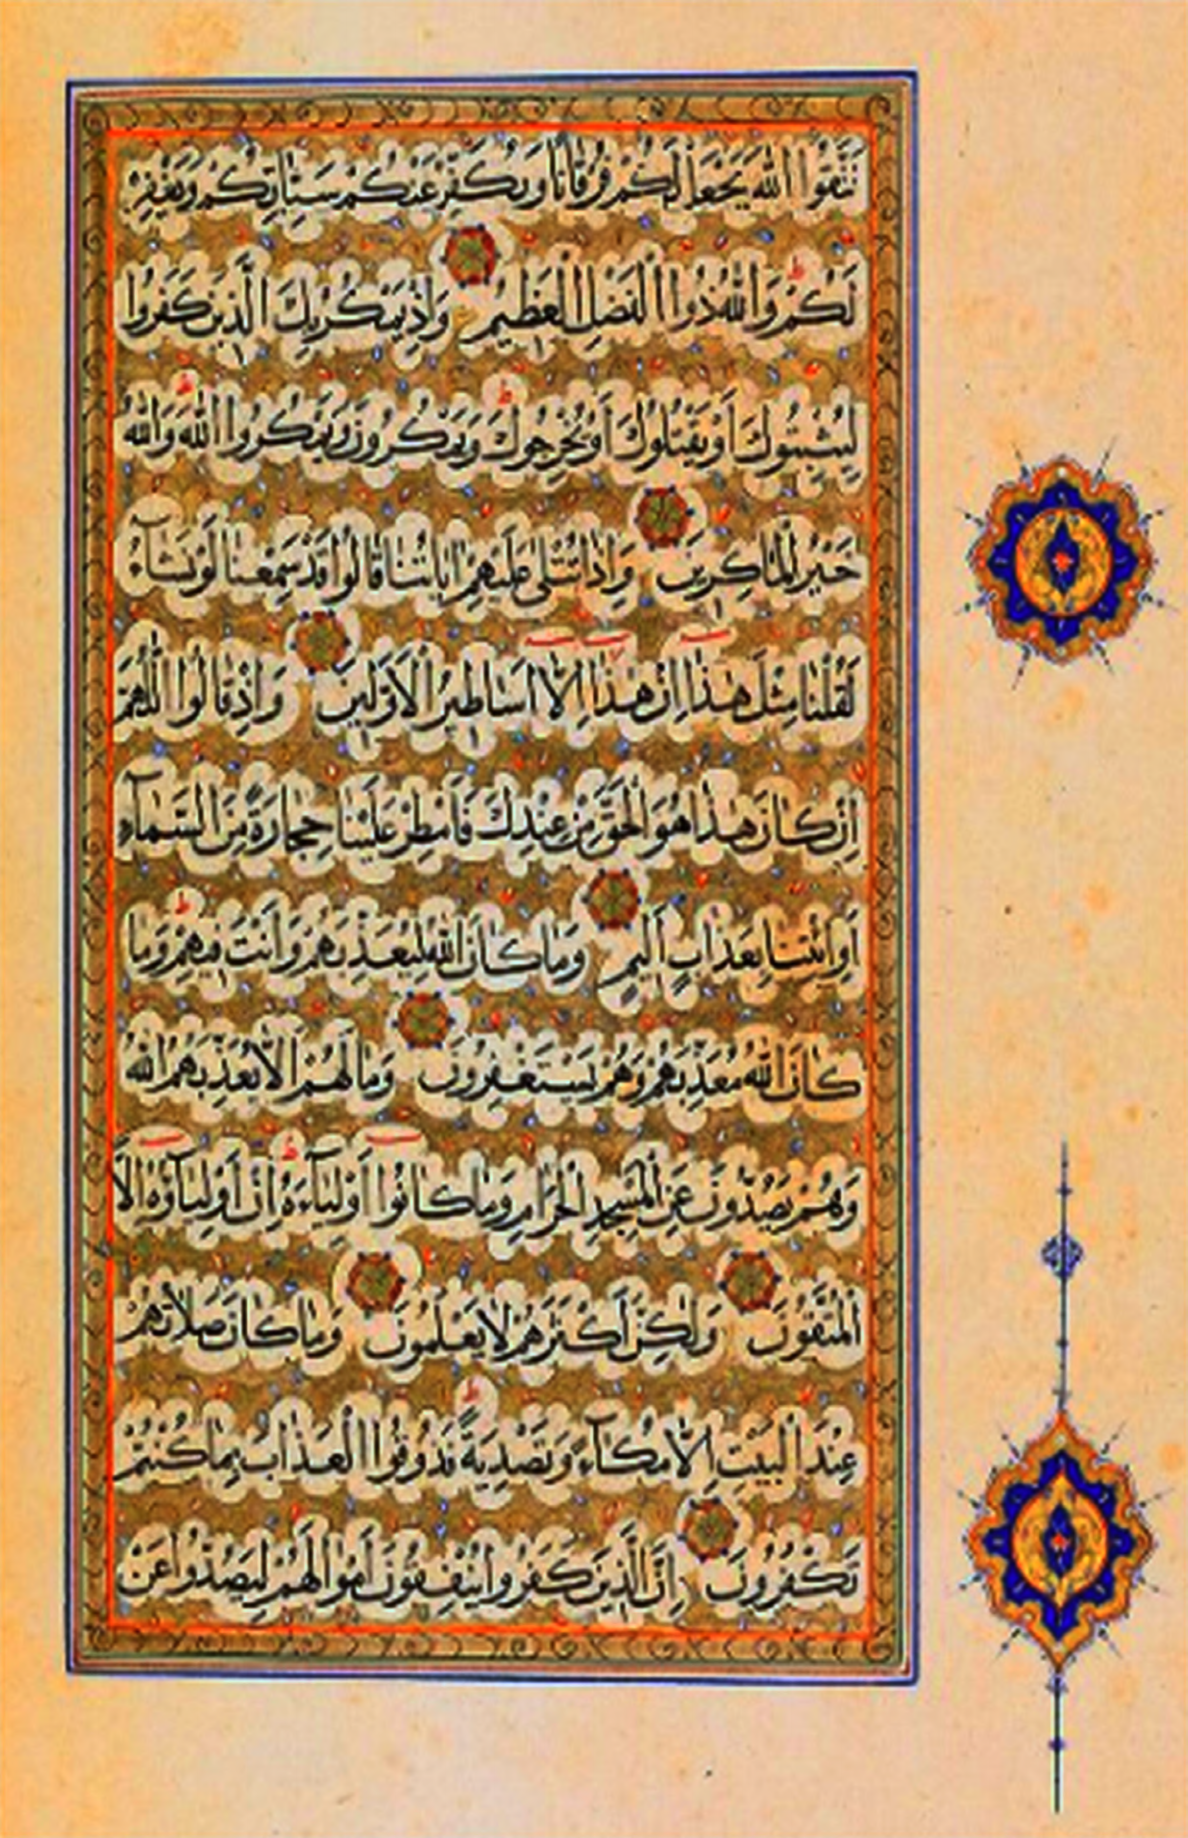 تَتَّقُوا اللّٰهَ يَجْعَلْ لَكُمْ فُرْقَانًا وَيُكَفِّرْ عَنْكُمْ سَيِّاٰتِكُمْ وَيَغْفِرْ
لَكُمْ ط وَاللّٰهُ ذُوا الْفَضْلِ الْعَظِيمِ وَاِذْ يَمْكُرُ بِكَ الَّذِينَ كَفَرُوا
لِيُثْبِتُوكَ اَوْ يَقْتُلُوكَ اَوْ يُخْرِجُوكَ ط وَيَمْكُرُونَ وَيَمْكُرُوا اللّٰهُ ط وَاللّٰهُ
خَيْرُ الْمَاكِرِينَ وَاِذَا تُتْلٰى عَلَيْهِمْ اٰيَاتُنَا قَالُوا قَدْ سَمِعْنَا لَوْ نَشَآءُ
لَقُلْنَا مِثْلَ هٰذَا اِنْ هٰذَا اِلَّا اَسَاطِيرُ الْاَوَّلِينَ وَاِذْ قَالُوا اللّٰهُمَّ
اِنْ كَانَ هٰذَا هُوَ الْحَقَّ مِنْ عِنْدِكَ فَاَمْطِرْ عَلَيْنَا حِجَارَةً مِنَ السَّمَآءِ
اَوِ ائْتِنَا بِعَذَابٍ اَلِيمٍ وَمَا كَانَ اللّٰهُ لِيُعَذِّبَهُمْ وَاَنْتَ فِيهِمْ ط وَمَا
كَانَ اللّٰهُ مُعَذِّبَهُمْ وَهُمْ يَسْتَغْفِرُونَ وَمَا لَهُمْ اَلَّا يُعَذِّبَهُمُ اللّٰهُ
وَهُمْ يَصُدُّونَ عَنِ الْمَسْجِدِ الْحَرَامِ وَمَا كَانُوا اَوْلِيَآءَهُ ط اِنْ اَوْلِيَآؤُهُ اِلَّا
الْمُتَّقُونَ وَلٰكِنَّ اَكْثَرَهُمْ لَا يَعْلَمُونَ وَمَا كَانَ صَلَاتُهُمْ
عِنْدَ الْبَيْتِ اِلَّا مُكَآءً وَتَصْدِيَةً ط فَذُوقُوا الْعَذَابَ بِمَا كُنْتُمْ
تَكْفُرُونَ اِنَّ الَّذِينَ كَفَرُوا يُنْفِقُونَ اَمْوَالَهُمْ لِيَصُدُّوا عَنْ